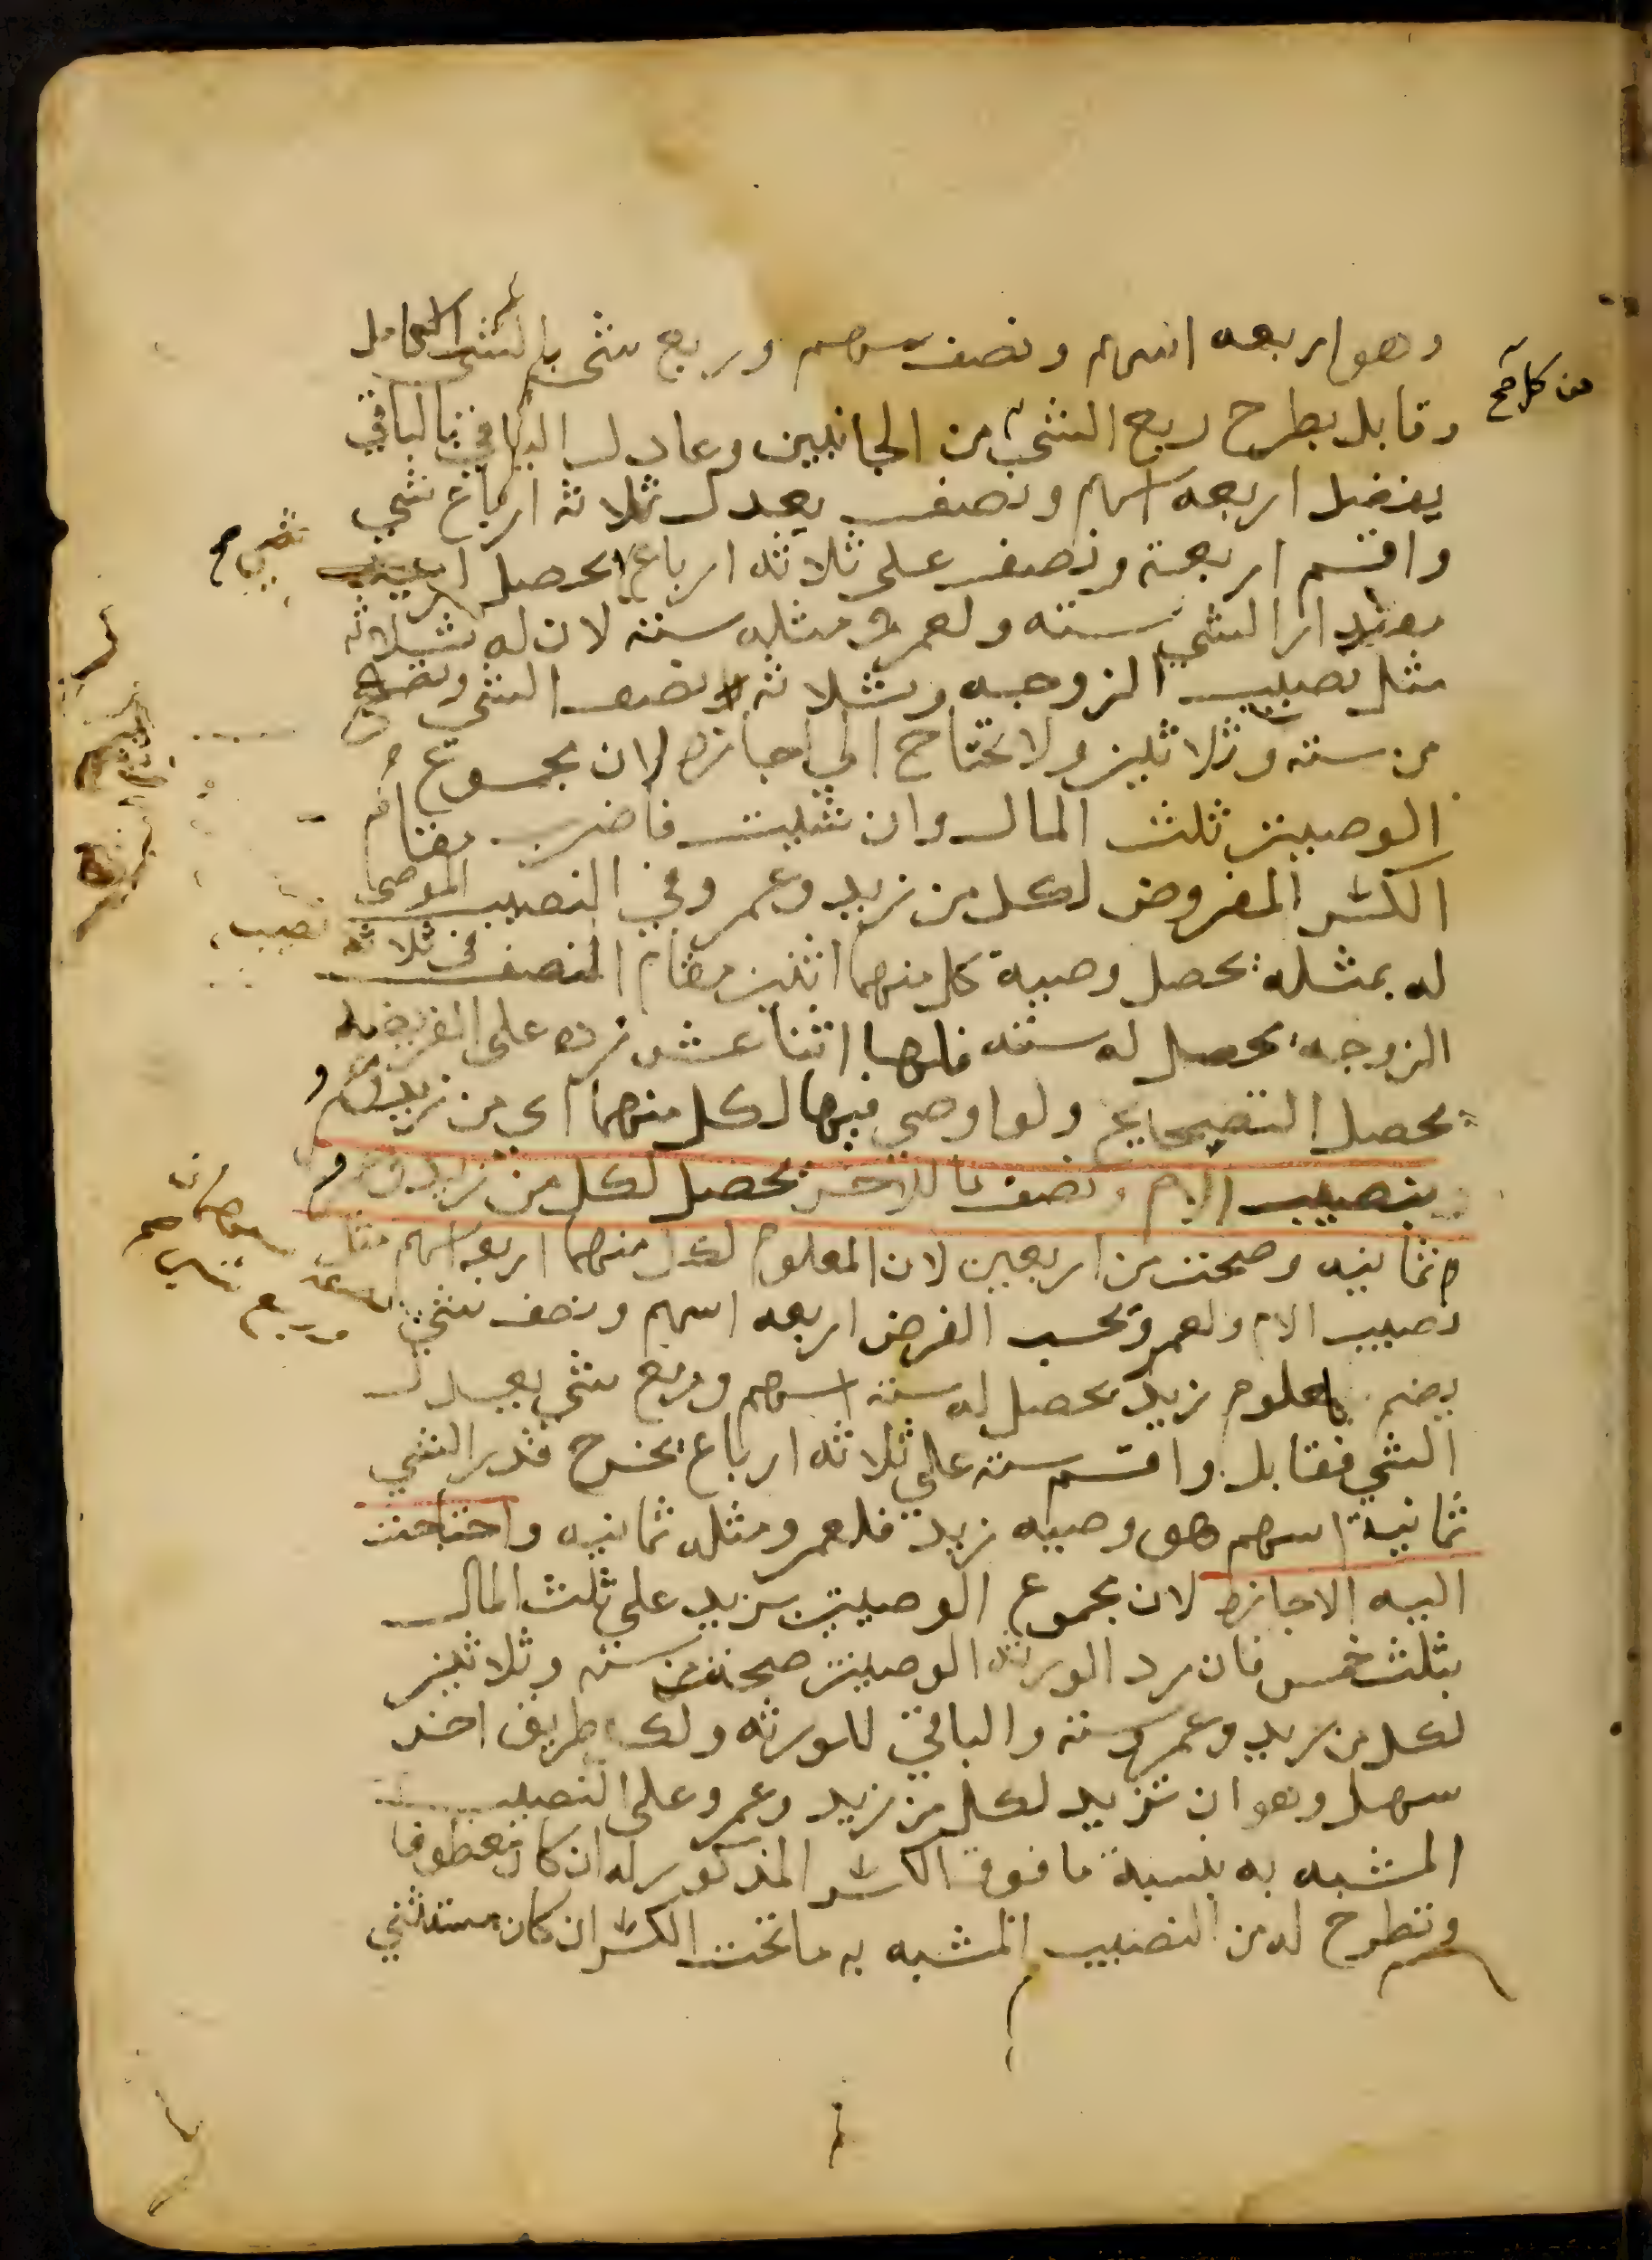 وهو اربعه اسهم ونصف سهم وربع شي بالشي الكامل
من كل صح
وقابل بطرح ربع الشي من الجانبين وعادل الباقي بالباقي
يفضل اربعه اسهم ونصف يعدل ثلاثه ارباع شي
واقسم اربعة ونصف على ثلاثه ارباع يحصل
مقدار الشي سته ولعمرو مثله سته لان له ثلاثه
مثل نصيب الزوجه وثلاثه نصف الشي وتصح
من سته وثلاثين ولا تحتاج الى اجازه لان مجموع
الوصيتين ثلث المال وان شيت فاضرب مقام
الكسر المفروض لكل من زيد وعمرو في النصيب الموصى
له بمثله يحصل وصية كل منهما اثنين مقام النصف في ثلاثه نصيب
الزوجه يحصل له سته فلهما اثنا عشر زده على الفريضه
يحصل التصحيح ولو اوصى فيها لكل منهما اى من زيد وعمرو
بنصيب الام ونصف ما للاخر يحصل لكل من زيد وعمرو
ثمانيه وصحت من اربعين لان المعلوم لكل منهما اربعه اسهم مثل
نصيب الام ولعمرو بحسب الفرض اربعه اسهم ونصف شي
يضم لمعلوم زيد يحصل له سته اسهم وربع شي يعدل
الشي فقابل واقسم سته على ثلاثه ارباع يخرج قدر الشي
ثمانية اسهم هو وصيه زيد فلعمرو مثله ثمانيه واحتاجت
اليه الاجازه لان مجموع الوصيتين يزيد على ثلث المال
بثلث خمس فان رد الورثه الوصيتين صحت من سته وثلاثين
لكل من زيد وعمرو سته والباقي للورثه ولك طريق اخر
سهل وهو ان تزيد لكل من زيد وعمرو على النصيب
المشبه به بنسبة ما فوق الكسر المذكور له ان كان معطوفا
وتطرح له من النصيب المشبه به ما تحت الكسر ان كان مستثنى